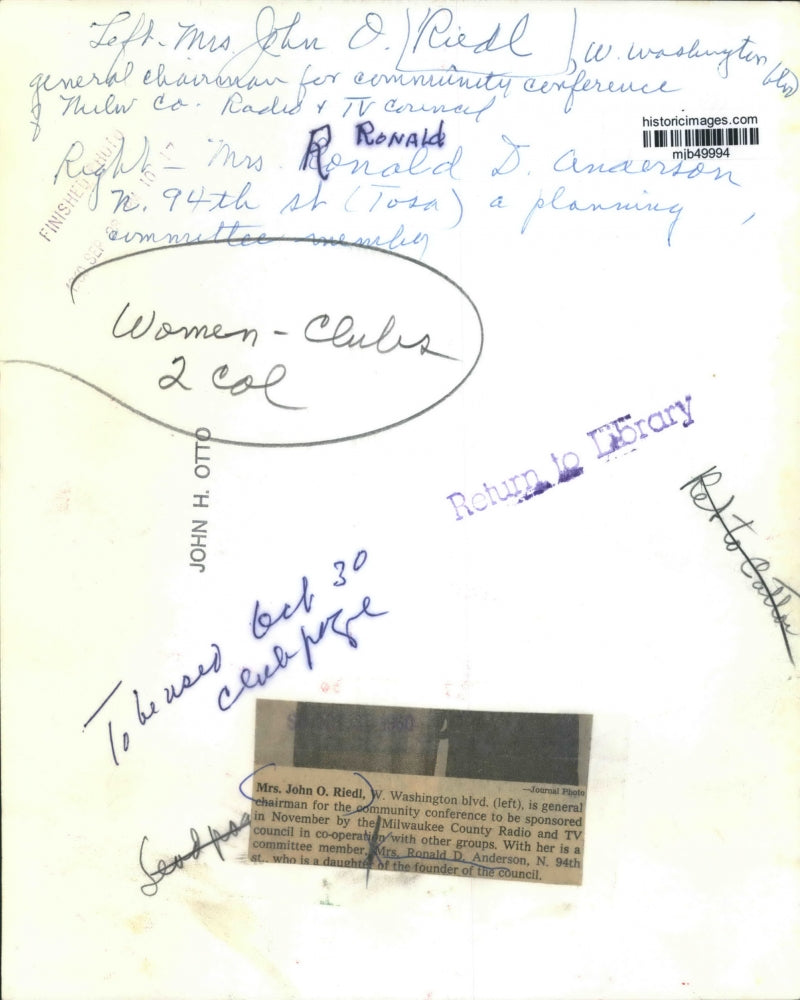 Left - Mrs John O. Riedl W. Washington blvd
general chairman for community conference
of Milw Co. Radio & TV Council
historicimages.com
mjb49994
RONALD
Right - Mrs. Ronald D. Anderson
N. 94th st (Tosa) a planning,
committee member
FINISHED PHOTO
SEP
Women - Clubs
2 col
JOHN H. OTTO
Return to Library
Ret to
To be used Oct 30
club page
—Journal Photo
Mrs. John O. Riedl, W. Washington blvd. (left), is general
chairman for the community conference to be sponsored
in November by the Milwaukee County Radio and TV
council in co-operation with other groups. With her is a
committee member, Mrs. Ronald D. Anderson, N. 94th
st., who is a daughter of the founder of the council.